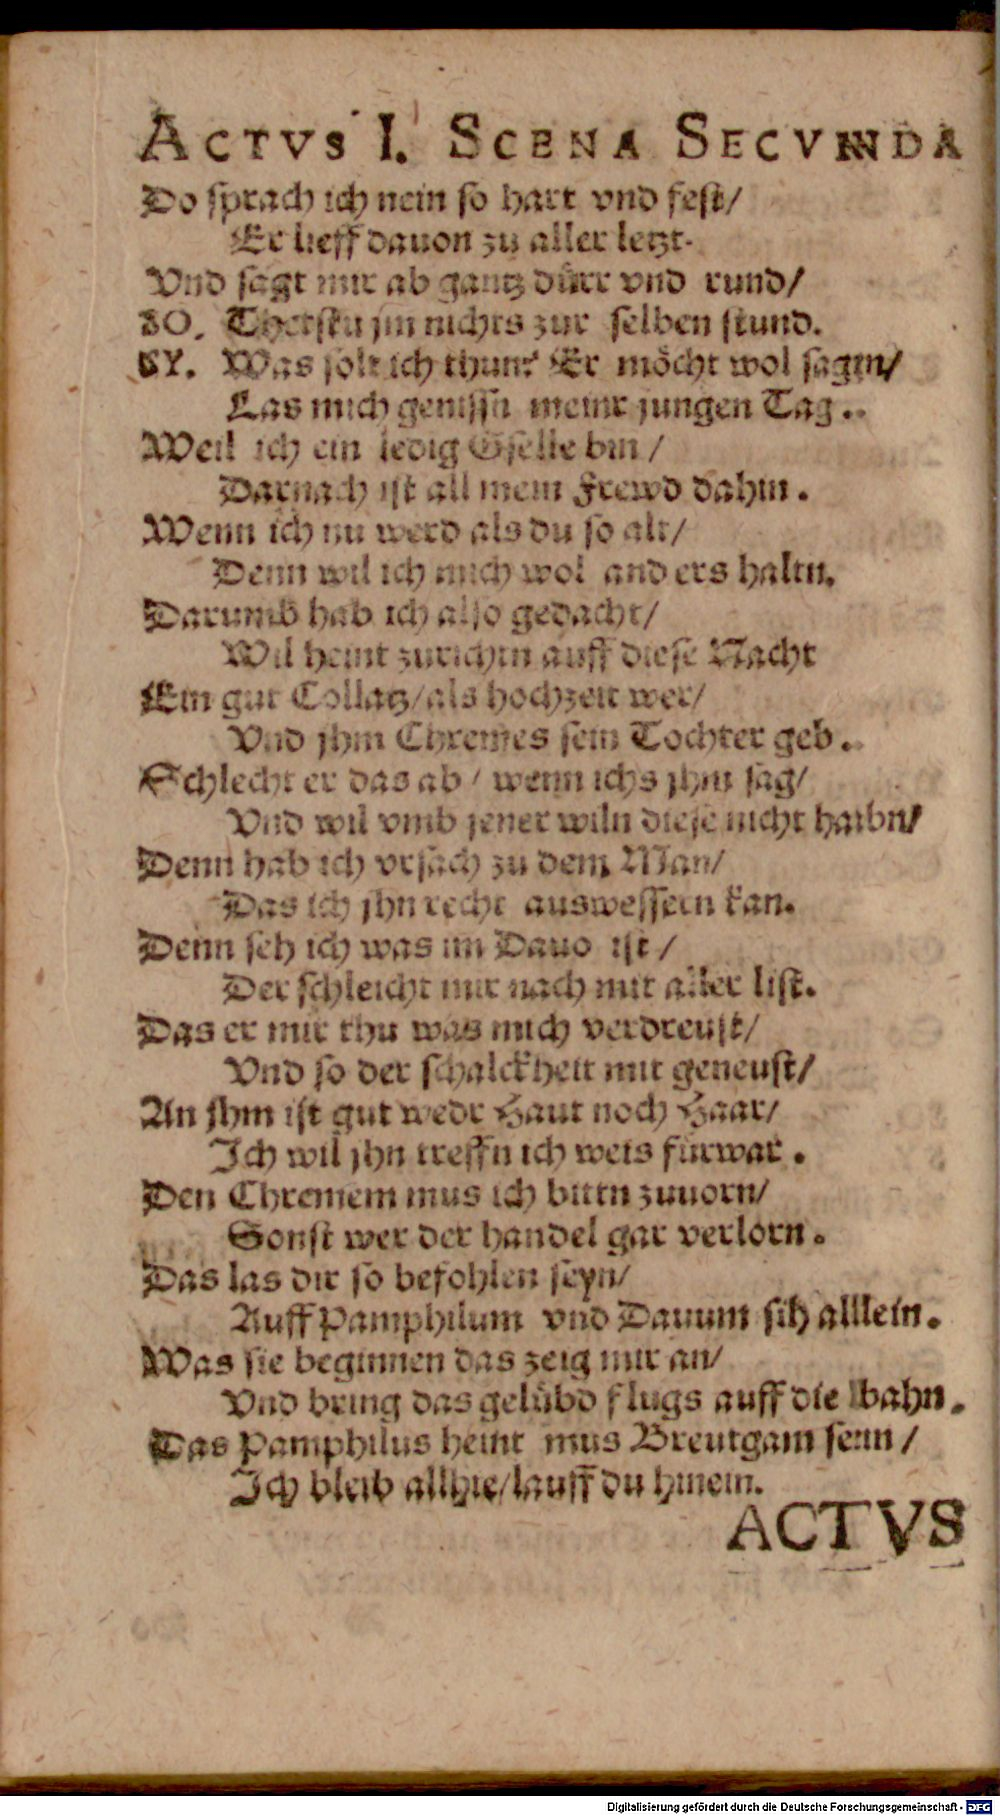 ACTVS I. SCENA SECVNDA
Do sprach ich nein so hart vnd fest/
Er lieff dauon zu aller letzt.
Vnd sagt mir ab gantz dürr vnd rund/
SO. Thetstu jm nichts zur selben stund.
SY. Was solt ich thun? Er möcht wol sagn/
Las mich genissn meinr jungen Tag..
Weil ich ein ledig Gselle bin/
Darnach ist all mein Frewd dahin.
Wenn ich nu werd als du so alt/
Denn wil ich mich wol anders haltn.
Darumb hab ich also gedacht/
Wil heint zurichtn auff diese Nacht
Ein gut Collatz/als hochzeit wer/
Vnd jhm Chremes sein Tochter geb..
Schlecht er das ab/ wenn ichs jhm sag/
Vnd wil vmb jener wiln diese nicht haibn/
Denn hab ich vrsach zu dem Man/
Das ich jhn recht auswessern kan.
Denn seh ich was im Dauo ist/
Der schleicht mir nach mit aller list.
Das er mir thu was mich verdreust/
Vnd so der schalckheit mit geneust/
An jhm ist gut wedr Haut noch Haar/
Ich wil jhn treffn ich weis fürwar.
Den Chremem mus ich bittn zuuorn/
Sonst wer der handel gar verlorn.
Das las dir so befohlen seyn/
Auff Pamphilum vnd Dauum sih alllein.
Was sie beginnen das zeig mir an/
Vnd bring das gelübd flugs auff die bahn.
Das Pamphilus heint mus Breutgam senn/
Ich bleib allhie/lauff du hinein.
ACTVS
Digitalisierung gefördert durch die Deutsche Forschungsgemeinschaft - DFG